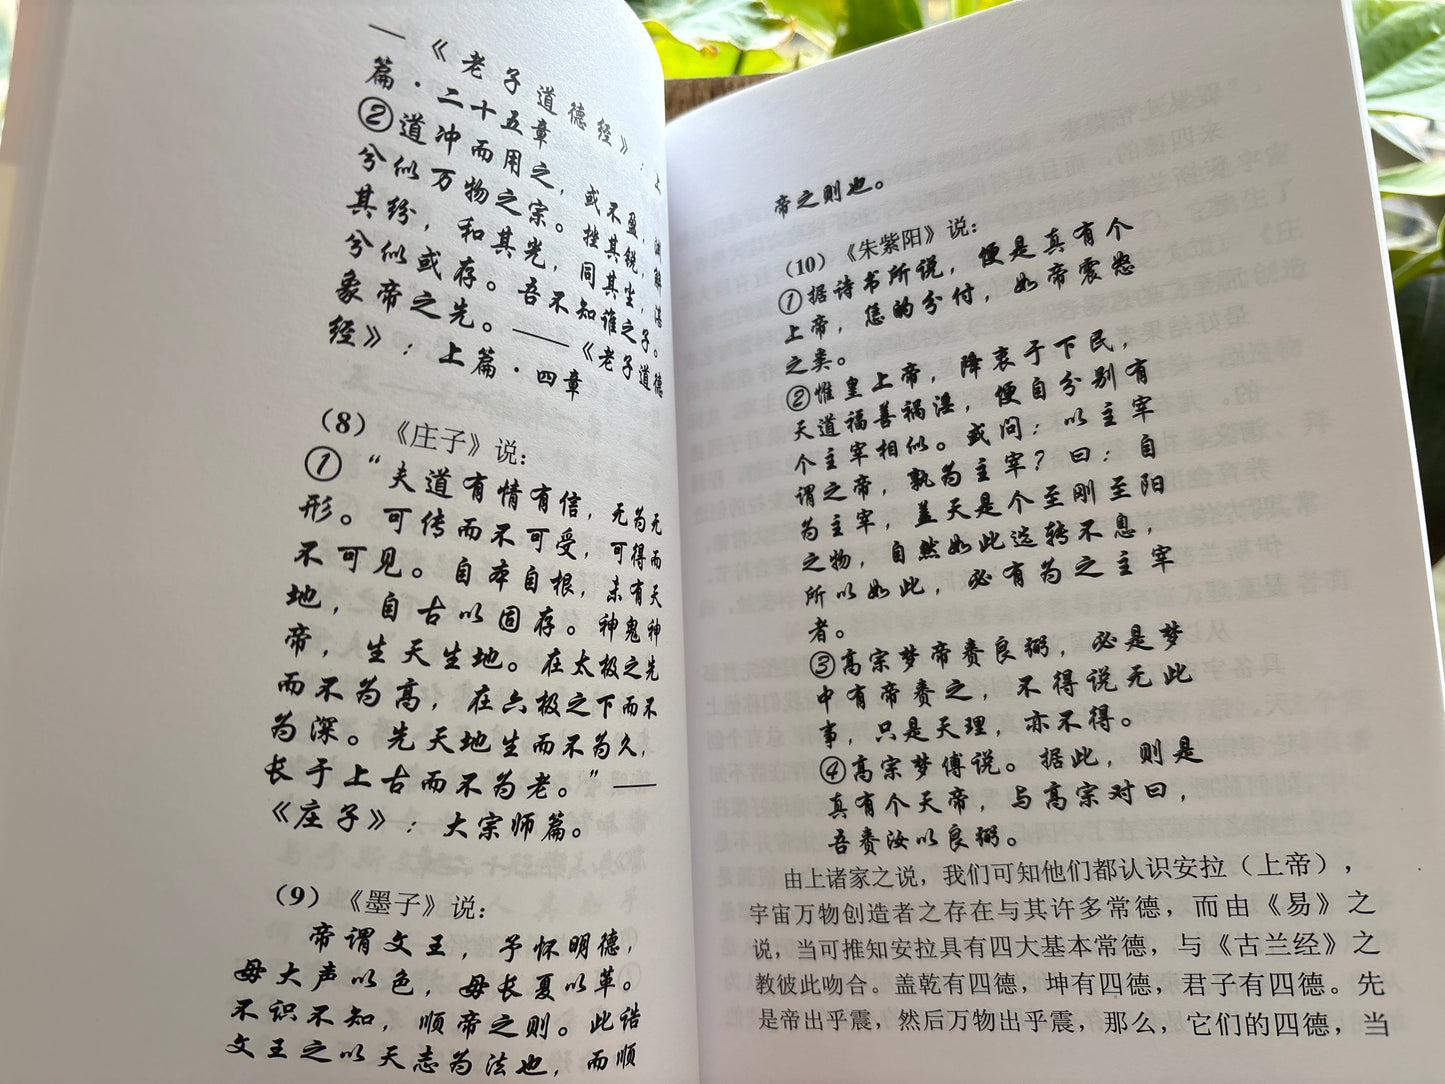 —《老子道德经》：上
篇·二十五章
②道冲而用之，或不盈，渊
兮似万物之宗。挫其锐，解
其纷，和其光，同其尘，湛
兮似或存。吾不知谁之子。
象帝之先。——《老子道德
经》：上篇·四章
（8）《庄子》说：
①“夫道有情有信，无为无
形。可传而不可受，可得而
不可见。自本自根，未有天
地，自古以固存。神鬼神
帝，生天生地。在太极之先
而不为高，在六极之下而不
为深。先天地生而不为久，
长于上古而不为老。”——
《庄子》：大宗师篇。
（9）《墨子》说：
帝谓文王，予怀明德，
毋大声以色，毋长夏以革。
不识不知，顺帝之则。此诰
文王之以天志为法也，而顺
帝之则也。
（10）《朱紫阳》说：
①据诗书所说，便是真有个
上帝，恁的分付，如帝震怒
之类。
②惟皇上帝，降衷于下民，
天道福善祸淫，便自分别有
个主宰相似。或问：以主宰
谓之帝，孰为主宰？曰：自
为主宰，盖天是个至刚至阳
之物，自然如此运转不息，
所以如此，必有为之主宰
者。
③高宗梦帝赉良弼，必是梦
中有帝赉之，不得说无此
事，只是天理，亦不得。
④高宗梦傅说。据此，则是
真有个天帝，与高宗对曰，
吾赉汝以良弼。
由上诸家之说，我们可知他们都认识安拉（上帝），
宇宙万物创造者之存在与其许多常德，而由《易》之
说，当可推知安拉具有四大基本常德，与《古兰经》之
教彼此吻合。盖乾有四德，坤有四德，君子有四德。先
是帝出乎震，然后万物出乎震，那么，它们的四德，当